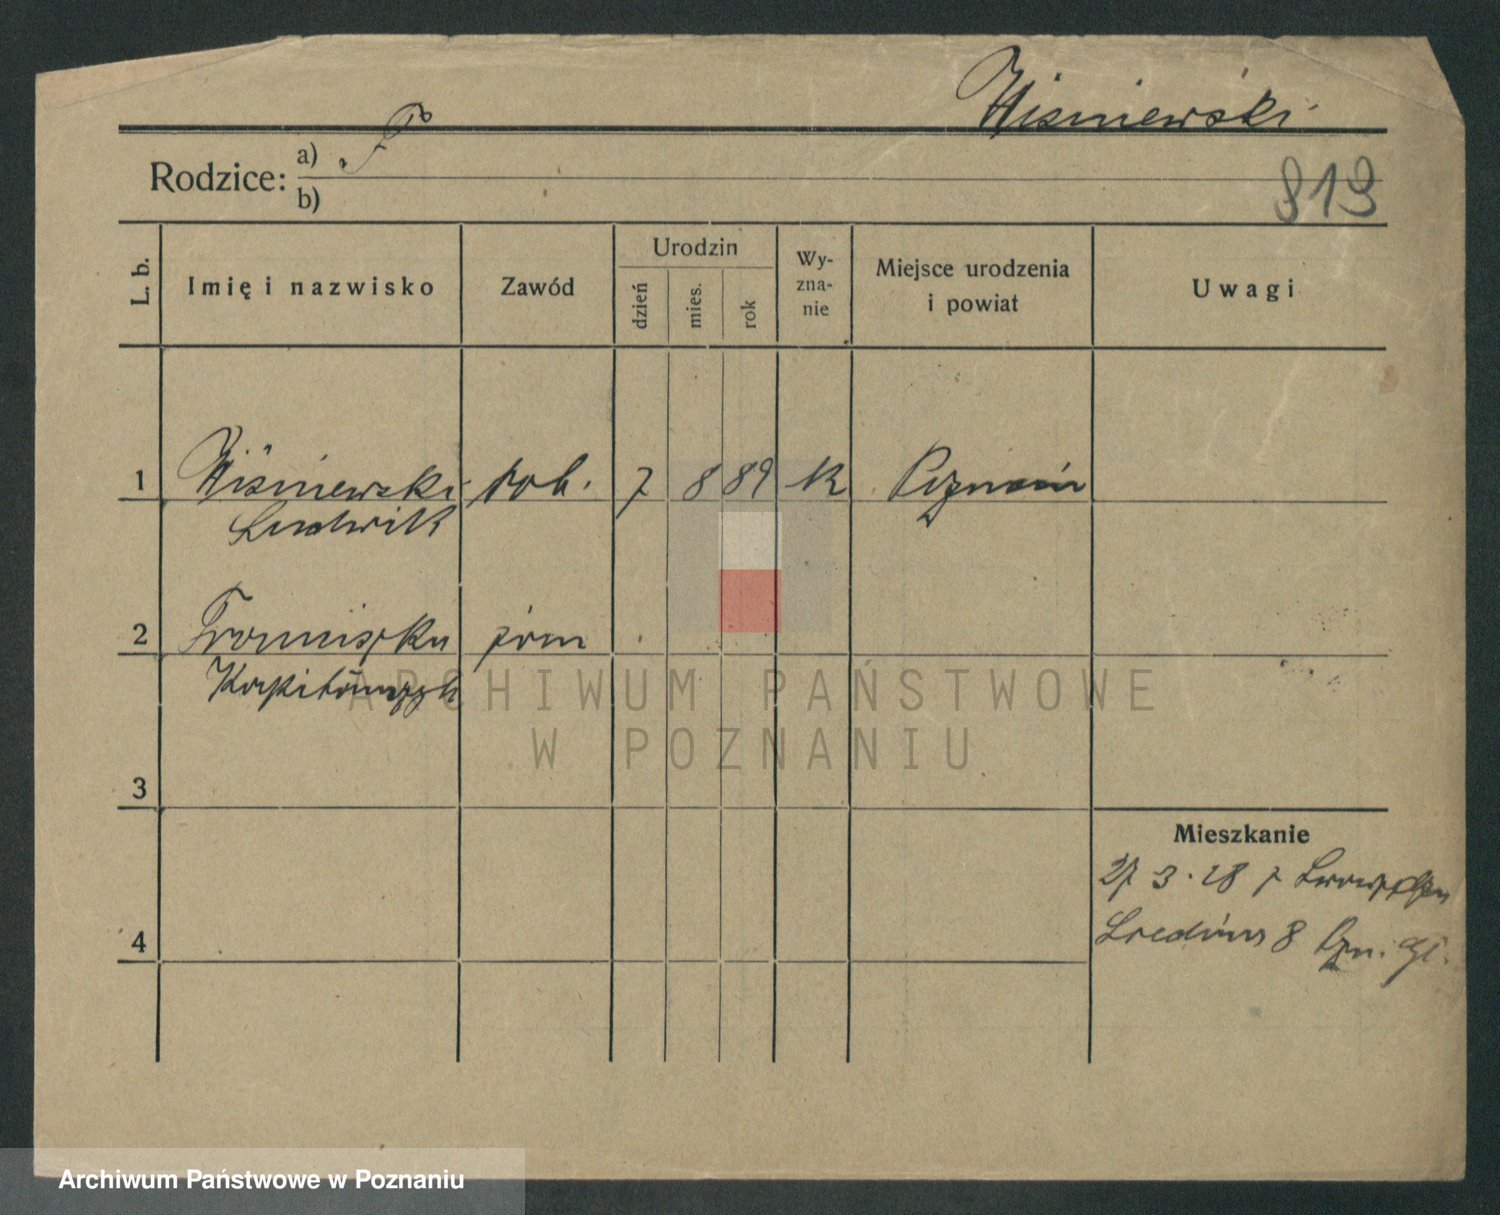 Wiśniewski
Rodzice: a)
b)
813
L. b. Imię i nazwisko Zawód Urodzin dzień mies. rok Wy-zna-nie Miejsce urodzenia i powiat Uwagi
1 Wiśniewski rob. 7 8 89 k Poznań
Ludwik
2 Franciszka żona
ARCHIWUM PAŃSTWOWE
W POZNANIU
3
Mieszkanie
27 3. 28 z
4 8
Archiwum Państwowe w Poznaniu